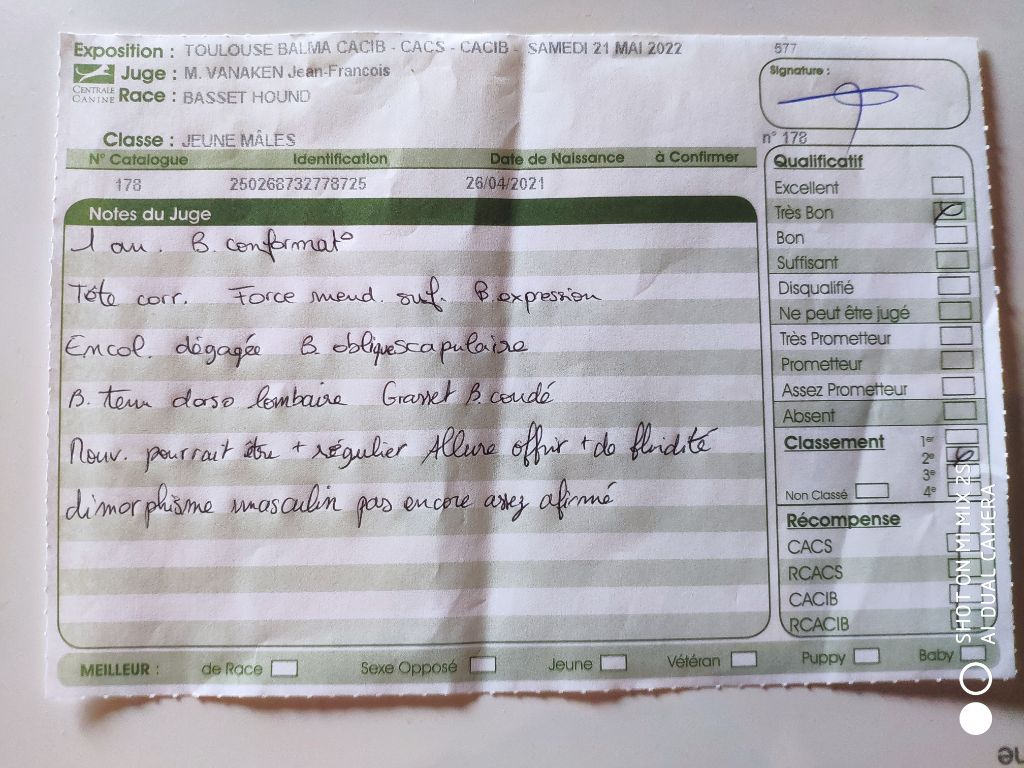 Exposition : TOULOUSE BALMA CACIB - CACS - CACIB - SAMEDI 21 MAI 2022
577
Juge : M. VANAKEN Jean-Francois
Signature :
CENTRALE CANINE
Race : BASSET HOUND
Classe : JEUNE MÂLES
n° 178
N° Catalogue Identification Date de Naissance à Confirmer
178 250268732778725 26/04/2021
Notes du Juge
1 an. B. conformat°
Tête corr. Force mend. suf. B. expression
Encol. dégagée B. oblique scapulaire
B. tenu dorso lombaire Grasset B. coudé
Mouv. pourrait être + régulier Allure offrir + de fluidité
dimorphisme masculin pas encore assez afirmé
Qualificatif
Excellent
Très Bon
Bon
Suffisant
Disqualifié
Ne peut être jugé
Très Prometteur
Prometteur
Assez Prometteur
Absent
Classement 1er
2e
3e
Non Classé 4e
Récompense
CACS
RCACS
CACIB
RCACIB
MEILLEUR : de Race Sexe Opposé Jeune Vétéran Puppy Baby
SHOT ON MI MIX 2S
AI DUAL CAMERA